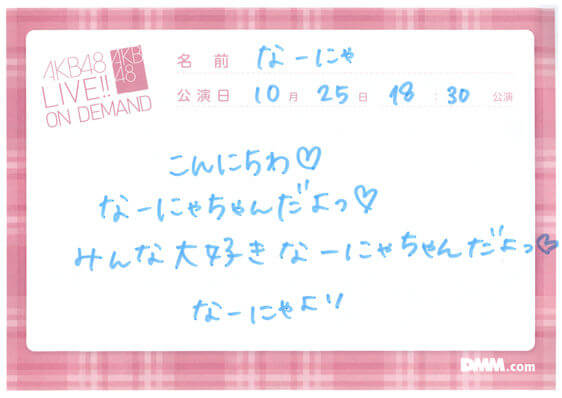 AKB48
LIVE!!
ON DEMAND
AKB
48
名前 なーにゃ
公演日 10月25日 18:30 公演
こんにちわ♡
なーにゃちゃんだよっ♡
みんな大好きなーにゃちゃんだよっ♡
なーにゃより
DMM.com